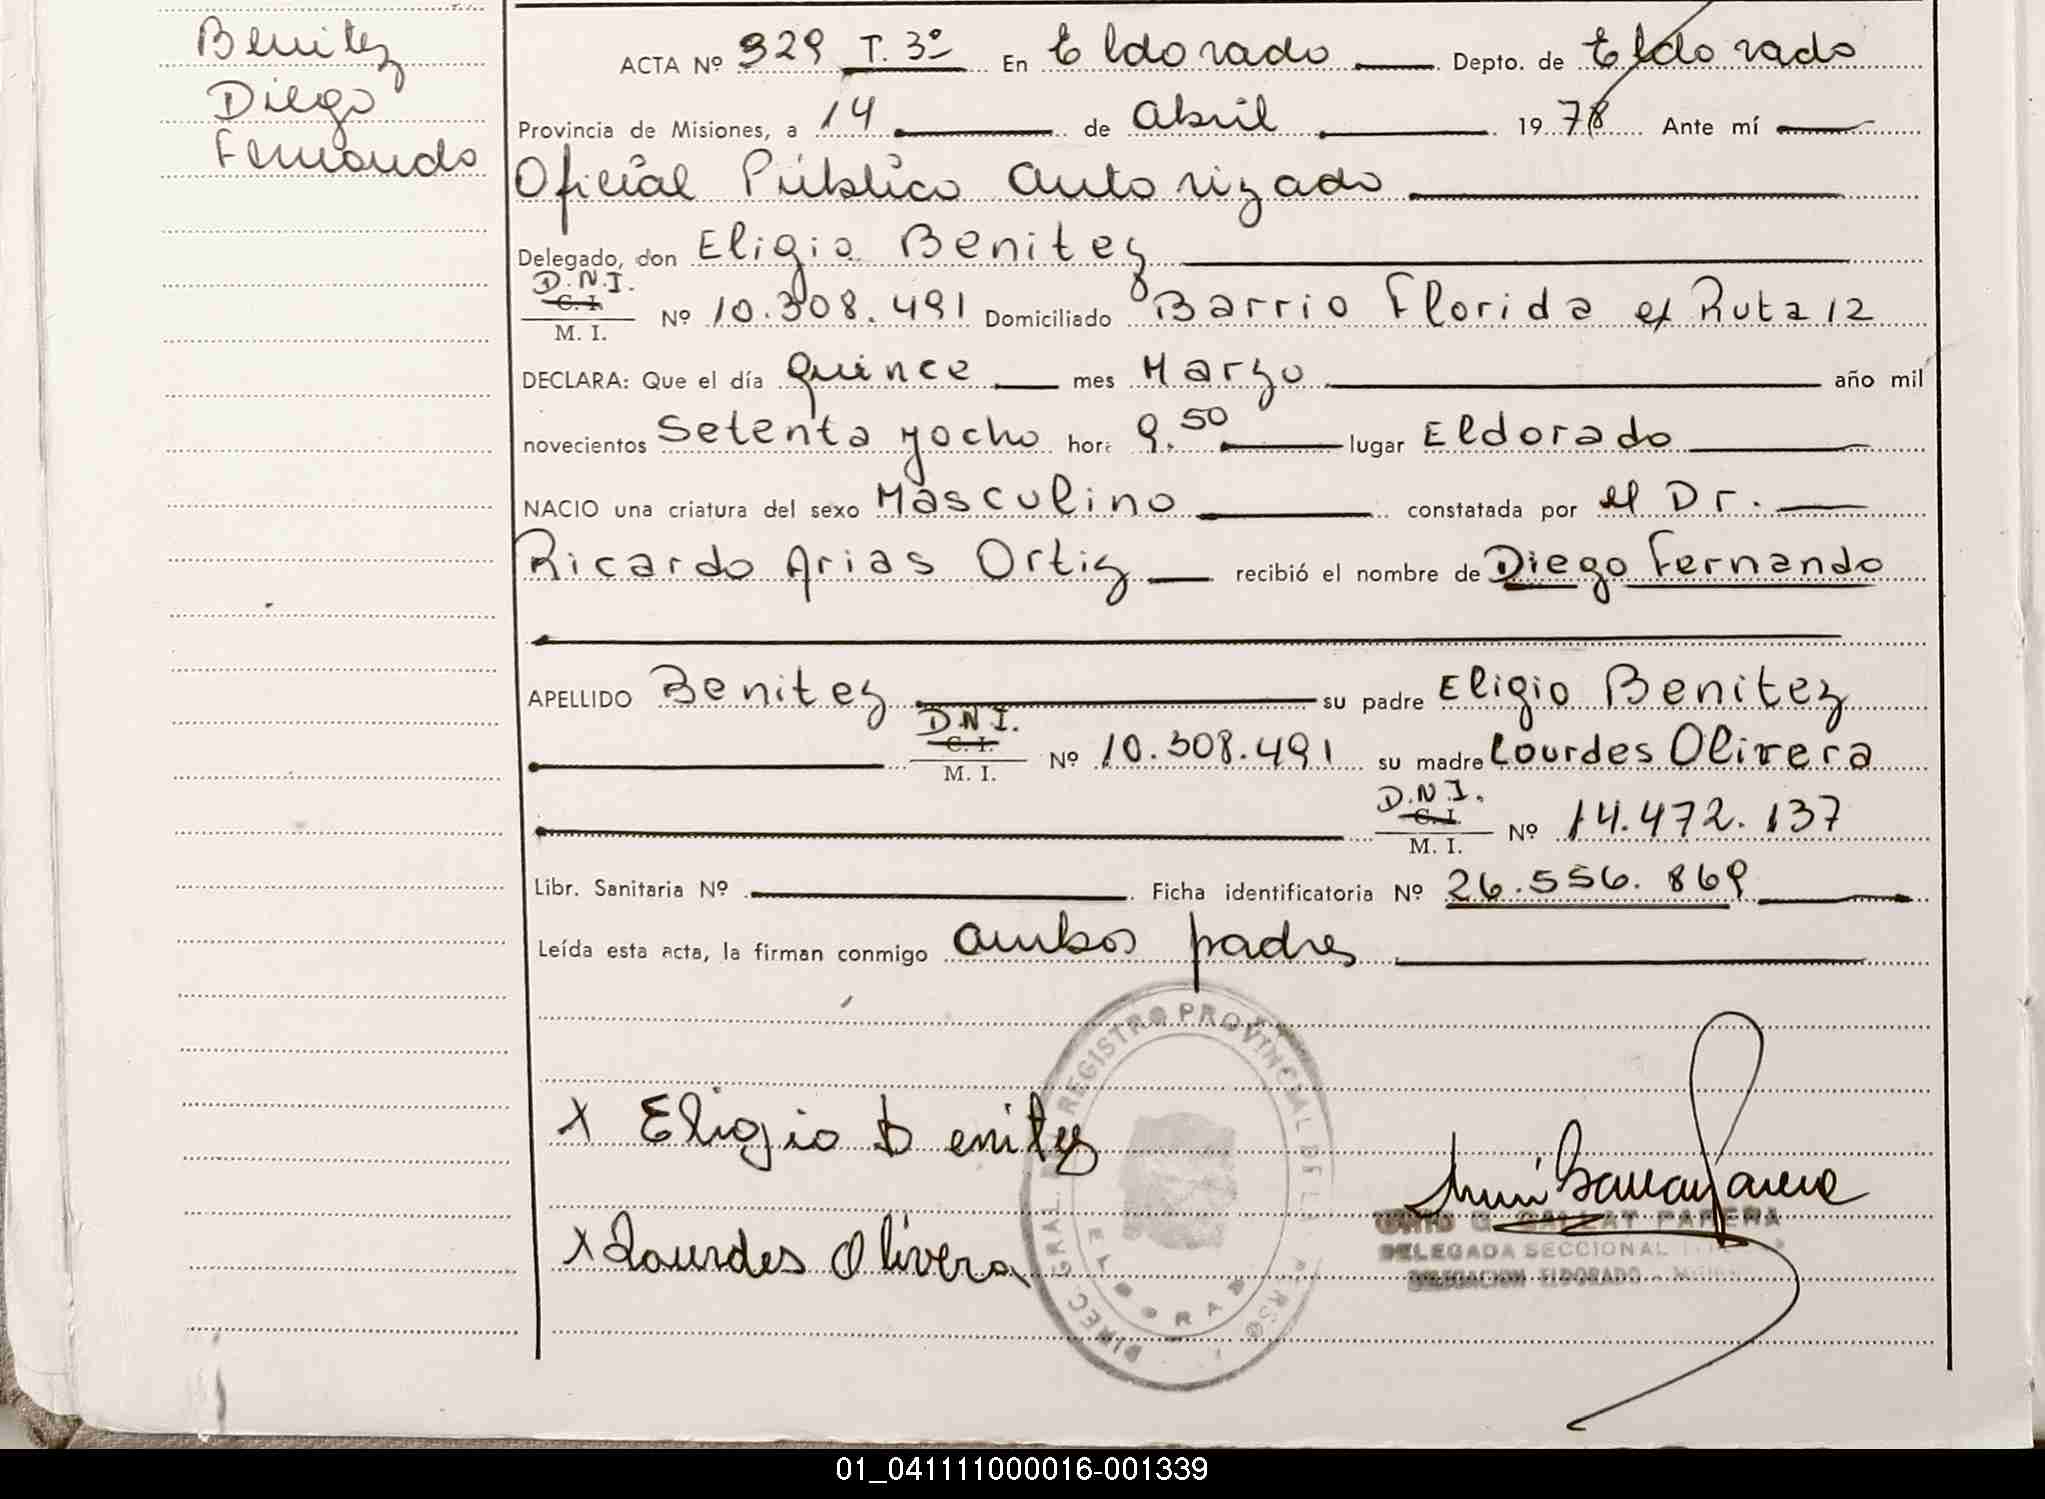 Benitez
Diego
Fernando
ACTA Nº 929 T. 3º En Eldorado Depto. de Eldorado
Provincia de Misiones, a 14 de Abril 1978 Ante mí
Oficial Público Autorizado
Delegado, don Eligio Benitez
D.N.I.
C. I.
M. I.
Nº 10.308.491 Domiciliado Barrio Florida ex Ruta 12
DECLARA: Que el día quince mes Marzo año mil
novecientos Setenta y ocho hora 9.50 lugar Eldorado
NACIO una criatura del sexo Masculino constatada por el Dr.
Ricardo Arias Ortiz recibió el nombre de Diego Fernando
APELLIDO Benitez su padre Eligio Benitez
D.N.I.
C. I.
M. I.
Nº 10.308.491 su madre Lourdes Olivera
D.N.I.
C. I.
M. I.
Nº 14.472.137
Libr. Sanitaria Nº Ficha identificatoria Nº 26.556.869
Leída esta acta, la firman conmigo ambos padres
DIREC. GRAL. REGISTRO PROVINCIAL DE
ELDORADO
X Eligio Benitez
X Lourdes Olivera
DELEGADA SECCIONAL
DELEGACION ELDORADO
01_041111000016-001339